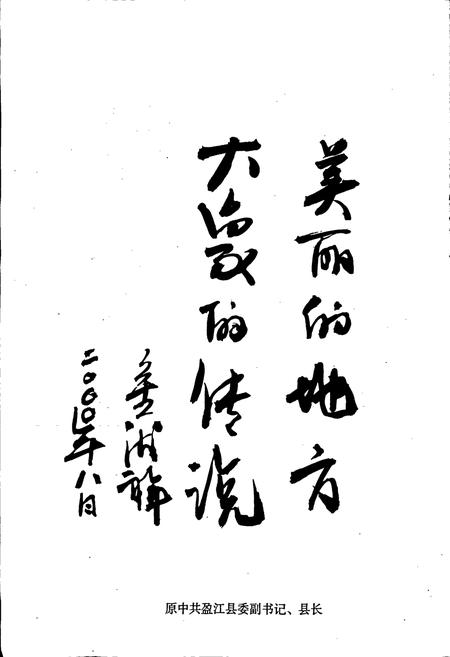 美丽的地方
大象的传说
二〇〇〇年八月
原中共盈江县委副书记、县长